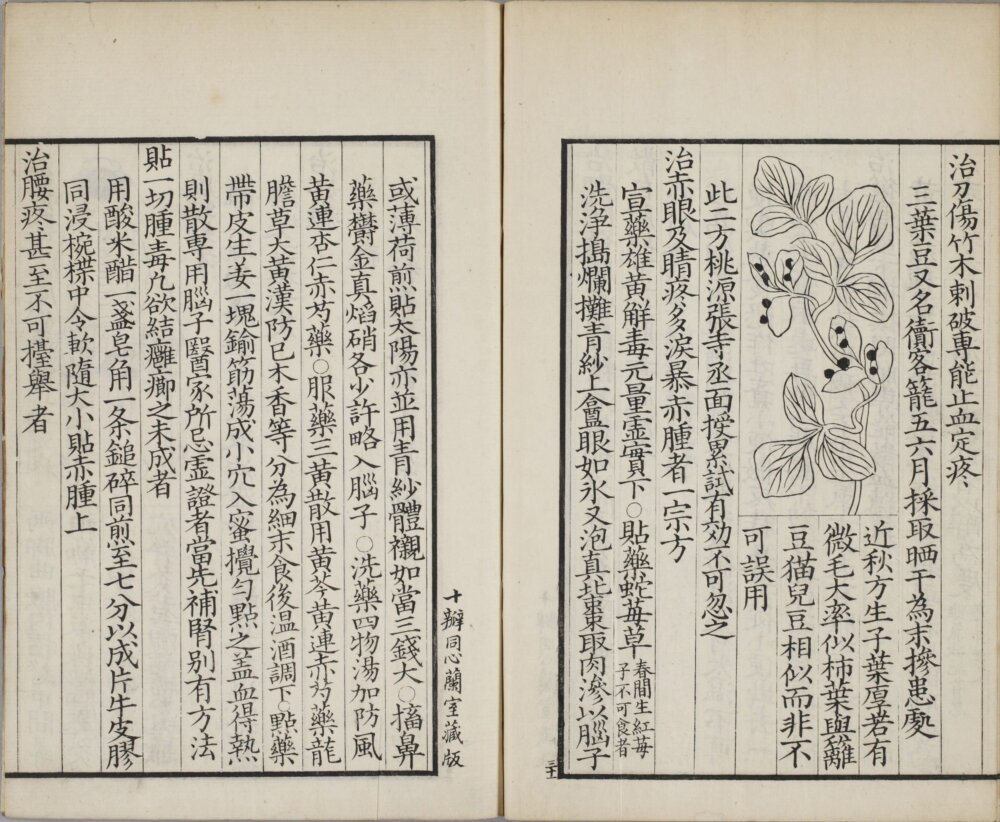 治刀傷竹木刺破專能止血定疼
三葉豆又名衛客籠五六月採取晒干為末摻患處
近秋方生子葉厚若有
微毛大率似柿葉與籬
豆猫兒豆相似而非不
可誤用
此二方桃源張寺丞面授累試有効不可忽之
治赤眼及睛疼多淚暴赤腫者一宗方
宣藥雄黄解毒元量虛實下○貼藥蛇苺草春間生紅苺子不可食者
洗浄搗爛攤青紗上盦眼如氷又泡真北棗取肉滲以腦子
或薄荷煎貼太陽亦並用青紗體襯如當三錢大○搐鼻
藥欝金真焰硝各少許略入腦子○洗藥四物湯加防風
黄連杏仁赤芍藥○服藥三黄散用黄芩黄連赤芍藥龍
膽草大黄漢防已木香等分為細末食後温酒調下○點藥
帶皮生姜一塊鍮筯蕩成小穴入蜜攪匀點之盖血得熱
則散専用腦子醫家所忌虛證者當先補腎别有方法
貼一切腫毒凢欲結癰癤之未成者
用酸米醋一盞皂角一条鎚碎同煎至七分以成片牛皮膠
同浸椀楪中令軟隨大小貼赤腫上
治腰疼甚至不可擡舉者
十瓣同心蘭室藏版